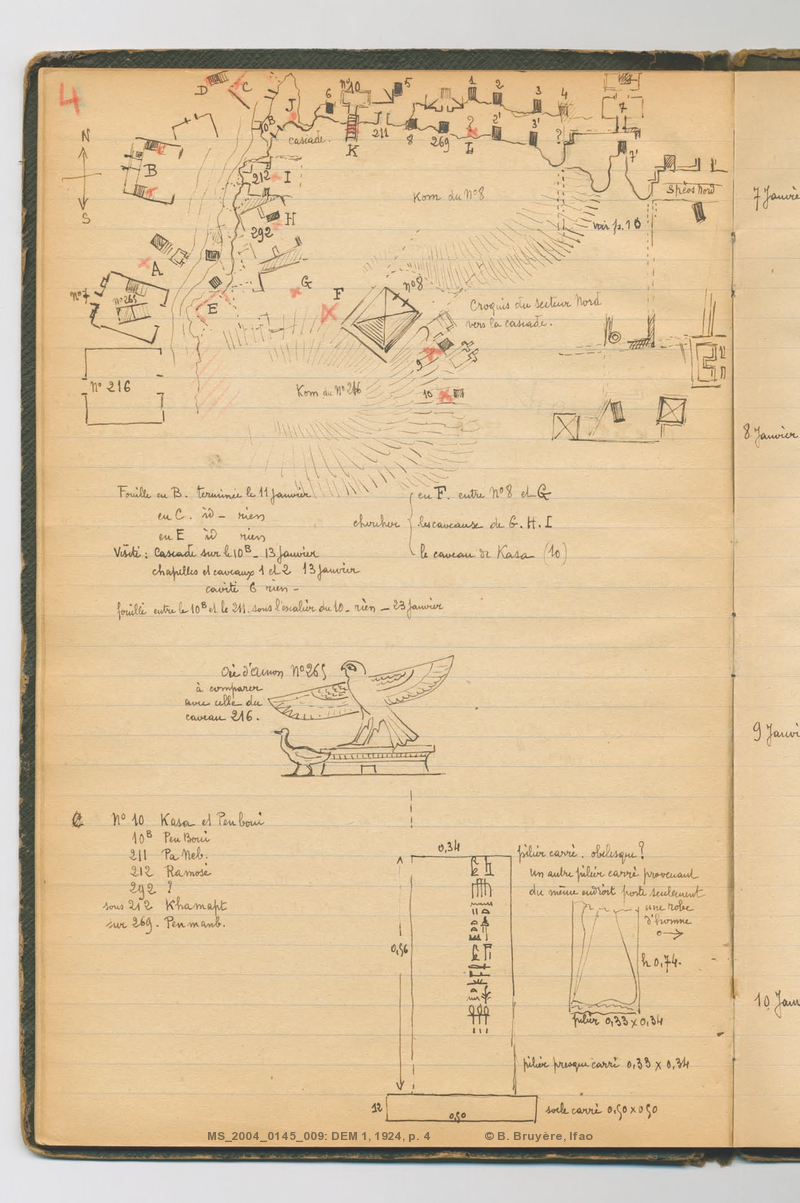 4
D
C
J
6
N° 10
5
1
2
3
4
7
10B
cascade
K
211
8
269
?
L
2'
3'
?
7'
N
S
B
212
I
Kom du N° 8
Spéos Nord
H
292
voir p. 10
A
N° 7
N° 265
E
G
F
N° 8
Croquis du secteur Nord
vers la cascade.
9
N° 216
Kom du N° 216
10
Fouille en B. terminée le 11 janvier
en C. id - rien
en E id rien
Visité : Cascade sur le 10B - 13 janvier
chapelles et caveaux 1 et 2 13 janvier
cavité 6 rien -
fouillé entre le 10B et le 211. sous l'escalier du 10 - rien - 23 janvier
chercher
en F. entre N° 8 et G
les caveaux de G. H. I
le caveau de Kasa (10)
Oie d'Amon N° 265
à comparer
avec celle du
caveau 216.
N° 10 Kasa et Penboui
10B Pen Boui
211 Pa Neb.
212 Ramosé
292 ?
sous 212 Khamapt
sur 269. Penmanb.
0,34
0,96
12
0,50
pilier carré. obélisque ?
Un autre pilier carré provenant
du même endroit porte seulement
une robe
d'homme
h 0,74.
pilier 0,33 x 0,34
pilier presque carré 0,33 x 0,34
socle carré 0,50 x 0,50
7 Janvie
8 Janvier
9 Janvi
10 Jan
MS_2004_0145_009: DEM 1, 1924, p. 4 © B. Bruyère, Ifao